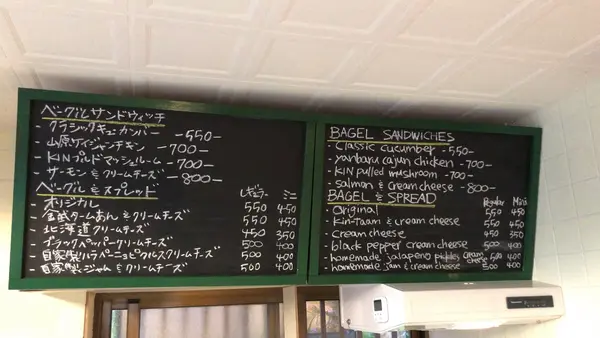 ベーグルサンドウィッチ
- クラシックキューカンバー -550-
- 山原ケイジャンチキン -700-
- KINプルドマッシュルーム -700-
- サーモン&クリームチーズ -800-
ベーグル&スプレッド
レギュラー ミニ
- オリジナル 550 450
- 金武ターム あん&クリームチーズ 550 450
- 北海道クリームチーズ 450 350
- ブラックペッパークリームチーズ 500 400
- 自家製ハラペーニョピクルスクリームチーズ 500 400
- 自家製ジャム&クリームチーズ 500 400
BAGEL SANDWICHES
- Classic cucumber -550-
- yanbaru cajun chicken -700-
- KIN pulled mushroom -700-
- salmon & cream cheese -800-
BAGEL & SPREAD
Regular Mini
- Original 550 450
- Kin-Taam & cream cheese 550 450
- cream cheese 450 350
- black pepper cream cheese 500 400
- homemade jalapeno pickles cream cheese 500 400
- homemade jam & cream cheese 500 400